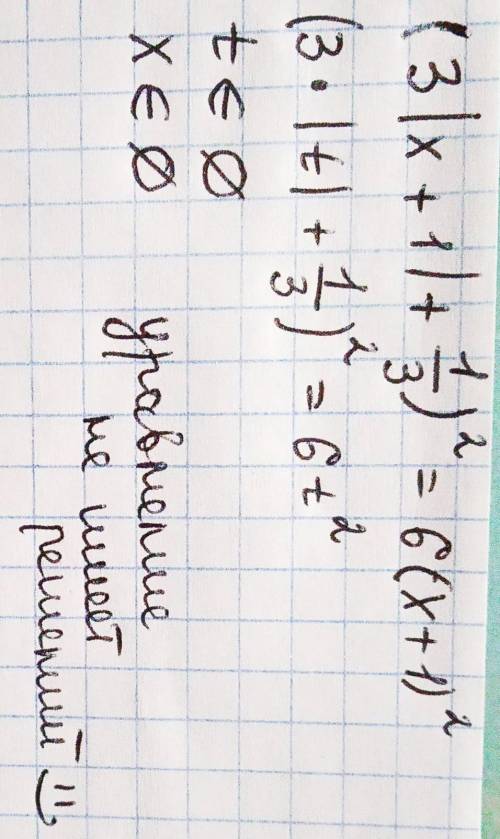 (3|x+1|+1/3)² = 6(x+1)²
(3·|t|+1/3)² = 6t²
t ∈ Ø
x ∈ Ø
уравнение
не имеет
решений